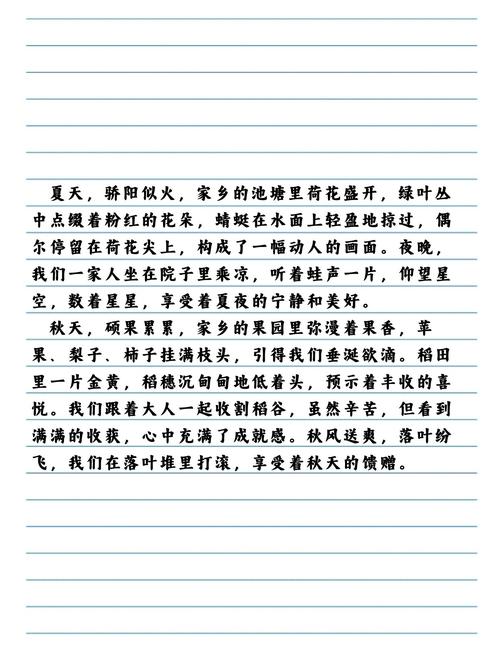 夏天，骄阳似火，家乡的池塘里荷花盛开，绿叶丛
中点缀着粉红的花朵，蜻蜓在水面上轻盈地掠过，偶
尔停留在荷花尖上，构成了一幅动人的画面。夜晚，
我们一家人坐在院子里乘凉，听着蛙声一片，仰望星
空，数着星星，享受着夏夜的宁静和美好。
秋天，硕果累累，家乡的果园里弥漫着果香，苹
果、梨子、柿子挂满枝头，引得我们垂涎欲滴。稻田
里一片金黄，稻穗沉甸甸地低着头，预示着丰收的喜
悦。我们跟着大人一起收割稻谷，虽然辛苦，但看到
满满的收获，心中充满了成就感。秋风送爽，落叶纷
飞，我们在落叶堆里打滚，享受着秋天的馈赠。